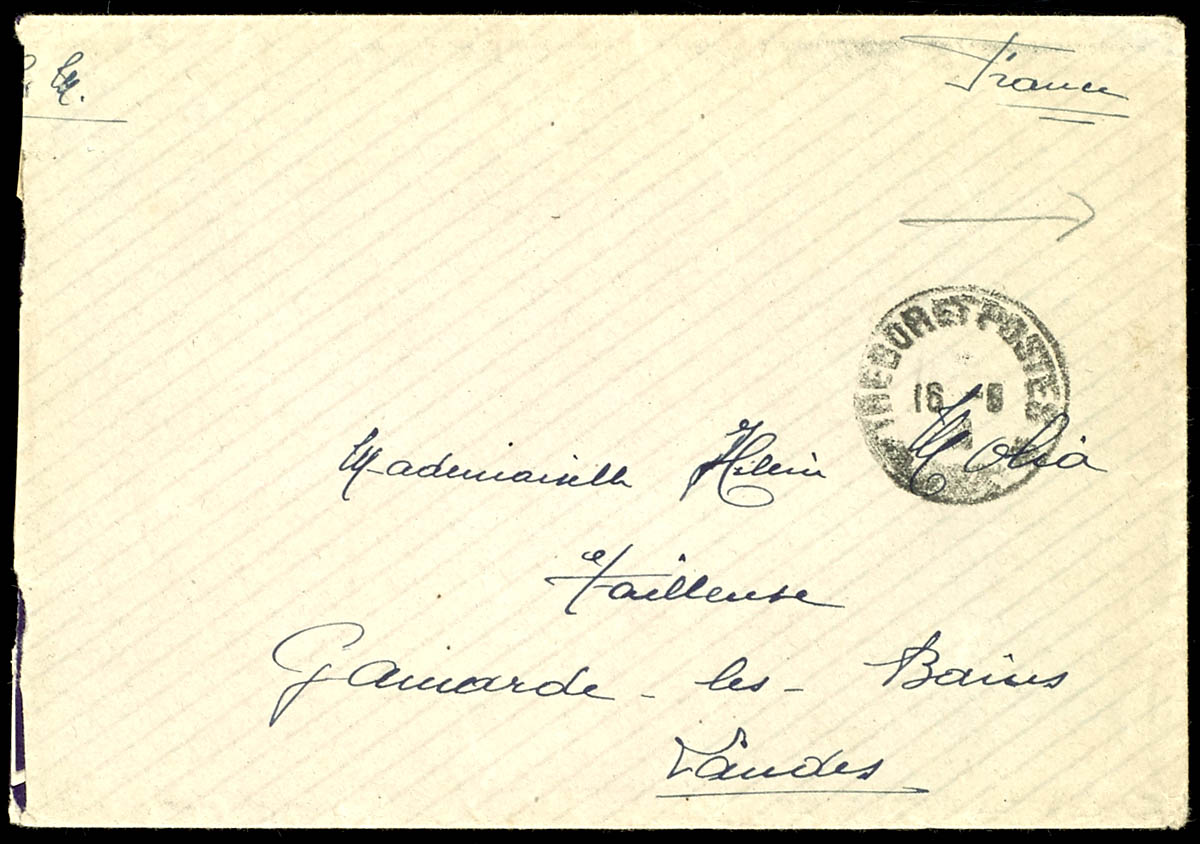 F. M.
France
TREBUR ET POSTES
16 -8
Mademoiselle Hélène Molia
Tailleuse
Gamarde - les - Bains
Landes